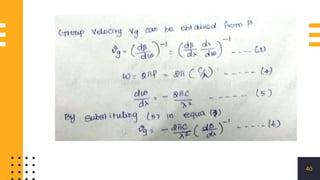 Group Velocity Vg can be obtained from β.
Vg = (dβ/dω)⁻¹ = (dβ/dλ dλ/dω)⁻¹ ---- (3)
W = 2ΠF = 2Π (C/λ) ------ (4)
dω/dλ = - 2ΠC/λ² ------ (5)
By substituting (5) in equa (3)
Vg = - 2ΠC/λ² (dβ/dλ)⁻¹ ---- (6)
40